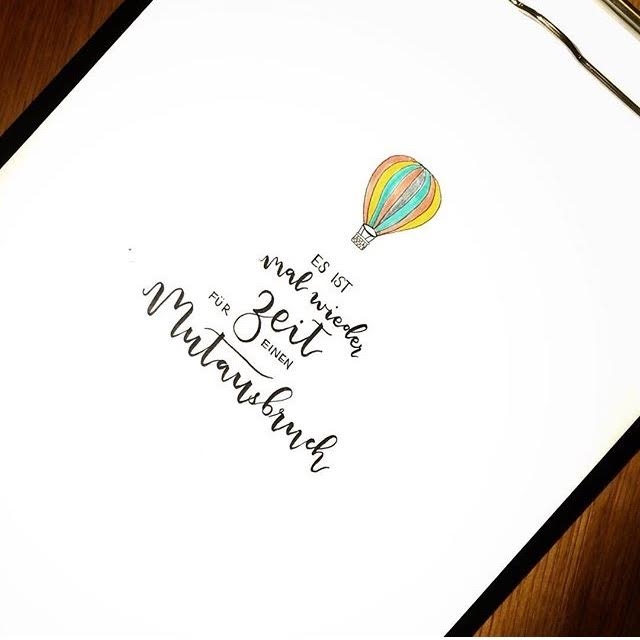 ES IST
mal wieder
Zeit
FÜR EINEN
Mutausbruch